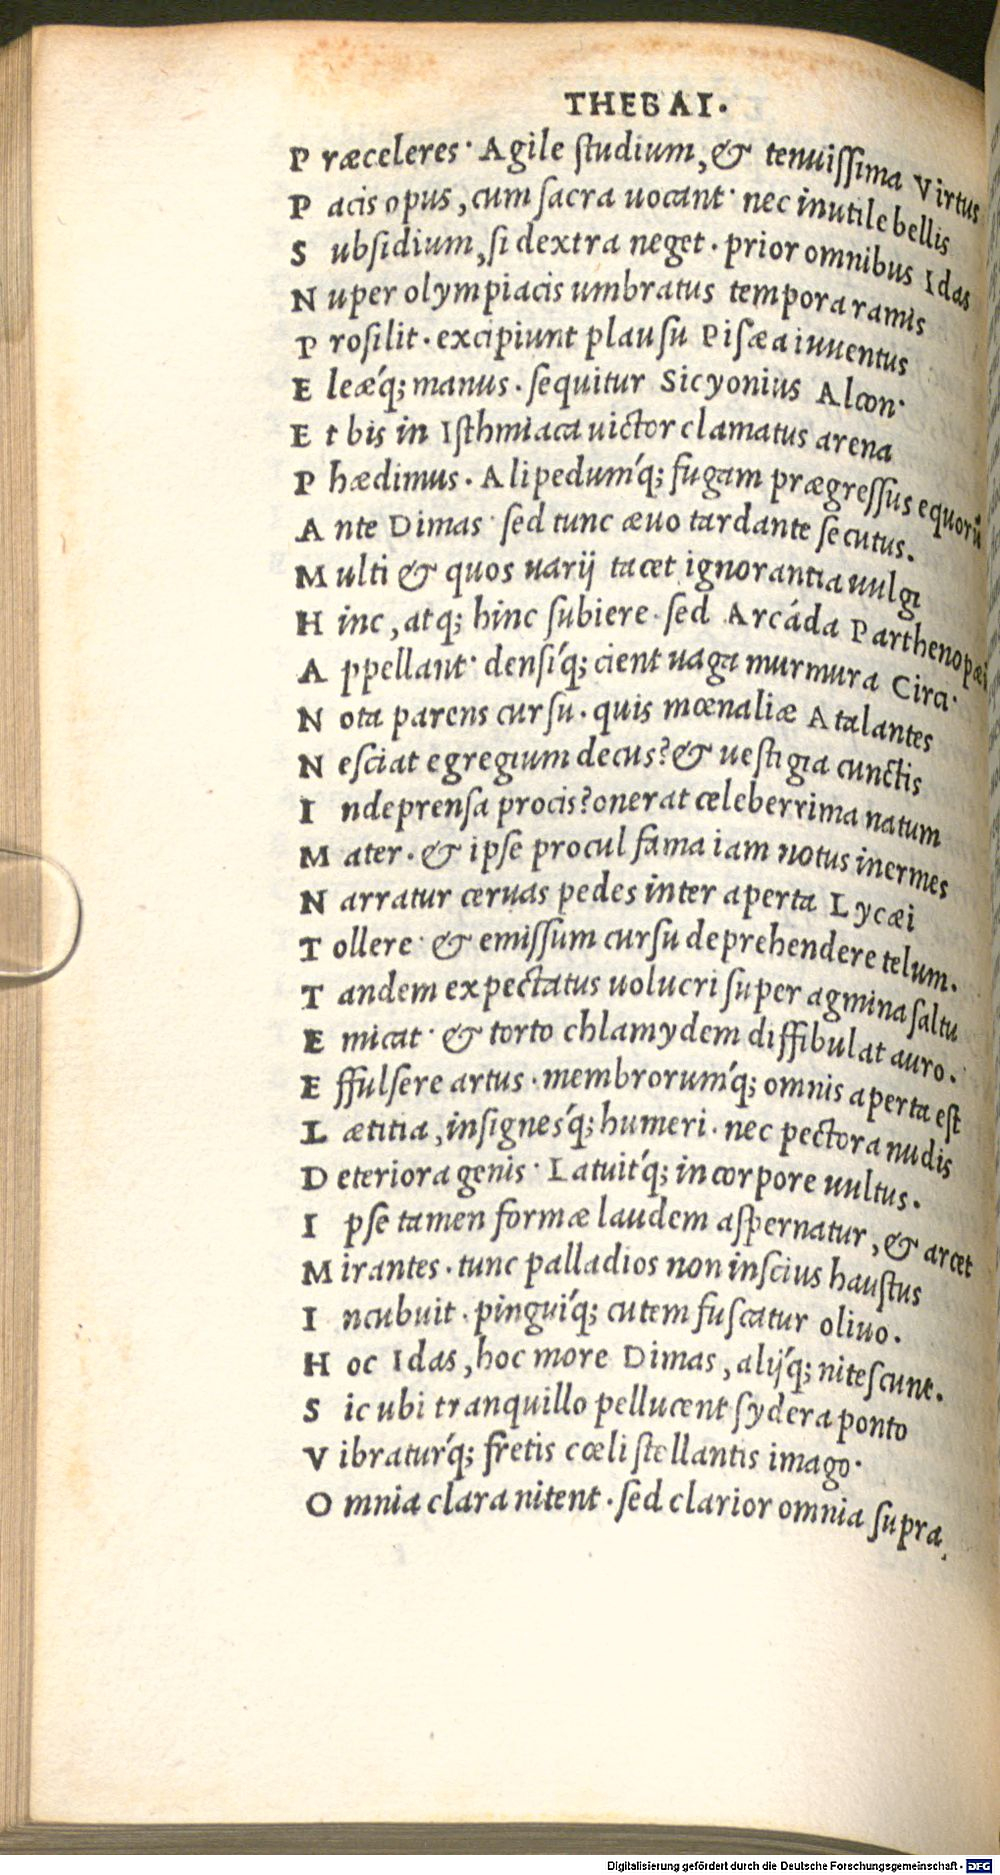 THEBAI.
Præceleres· Agile ſtudium, & tenuiſſima Virtus
Pacis opus, cum ſacra uocant· nec inutile bellis
Subſidium, ſi dextra neget. prior omnibus Idas
Nuper olympiacis umbratus tempora ramis
Proſilit. excipiunt plauſu Piſæa iuuentus
Eleæq́; manus. ſequitur Sicyonius Alcon·
Et bis in Iſthmiaca uictor clamatus arena
Phædimus. Alipedumq́; fugam prægreſſus equorū
Ante Dimas· ſed tunc æuo tardante ſecutus.
Multi & quos uarij tacet ignorantia uulgi
Hinc, atq; hinc ſubiere· ſed Arcáda Parthenopæi
Appellant· denſiq́; cient uaga murmura Circi·
Nota parens curſu. quis mœnaliæ Atalantes
Neſciat egregium decus? & ueſtigia cunctis
Indeprenſa procis? onerat celeberrima natum
Mater. & ipſe procul fama iam notus inermes
Narratur ceruas pedes inter aperta Lycæi
Tollere· & emiſſum curſu deprehendere telum.
Tandem expectatus uolucri ſuper agmina ſaltu
Emicat· & torto chlamydem diffibulat auro.
Effulſere artus. membrorumq́; omnis aperta eſt
Lætitia, inſigneſq́; humeri. nec pectora nudis
Deteriora genis· Latuitq́; in corpore uultus.
Ipſe tamen formæ laudem aſpernatur, & arcet
Mirantes. tunc palladios non inſcius hauſtus
Incubuit. pinguiq́; cutem fuſcatur oliuo.
Hoc Idas, hoc more Dimas, alijq́; niteſcunt.
Sic ubi tranquillo pellucent ſydera ponto
Vibraturq́; fretis cœli ſtellantis imago·
Omnia clara nitent. ſed clarior omnia ſupra
Digitalisierung gefördert durch die Deutsche Forschungsgemeinschaft - DFG